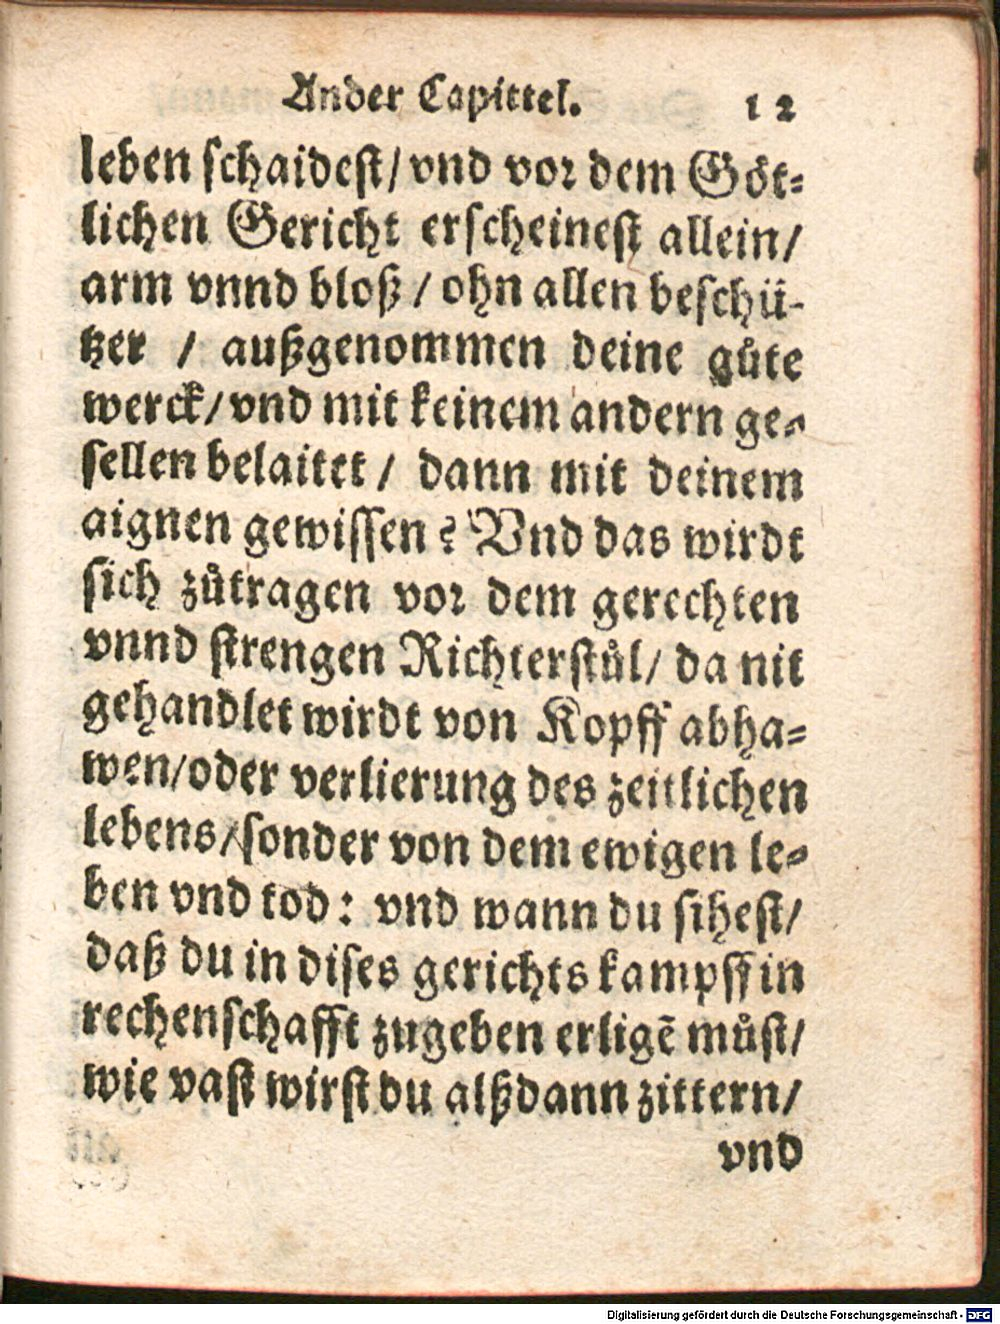 Ander Capittel. 12
leben schaidest/ vnd vor dem Göt-
lichen Gericht erscheinest allein/
arm vnnd bloß / ohn allen beschü-
tzer / außgenommen deine gůte
werck/ vnd mit keinem andern ge-
sellen belaitet / dann mit deinem
aignen gewissen? Vnd das wirdt
sich zůtragen vor dem gerechten
vnnd strengen Richterstůl/ da nit
gehandlet wirdt von Kopff abha-
wen/oder verlierung des zeitlichen
lebens/sonder von dem ewigen le-
ben vnd tod: vnd wann du sihest/
daß du in dises gerichts kampff in
rechenschafft zugeben erligẽ můst/
wie vast wirst du alßdann zittern/
vnd
Digitalisierung gefördert durch die Deutsche Forschungsgemeinschaft - DFG